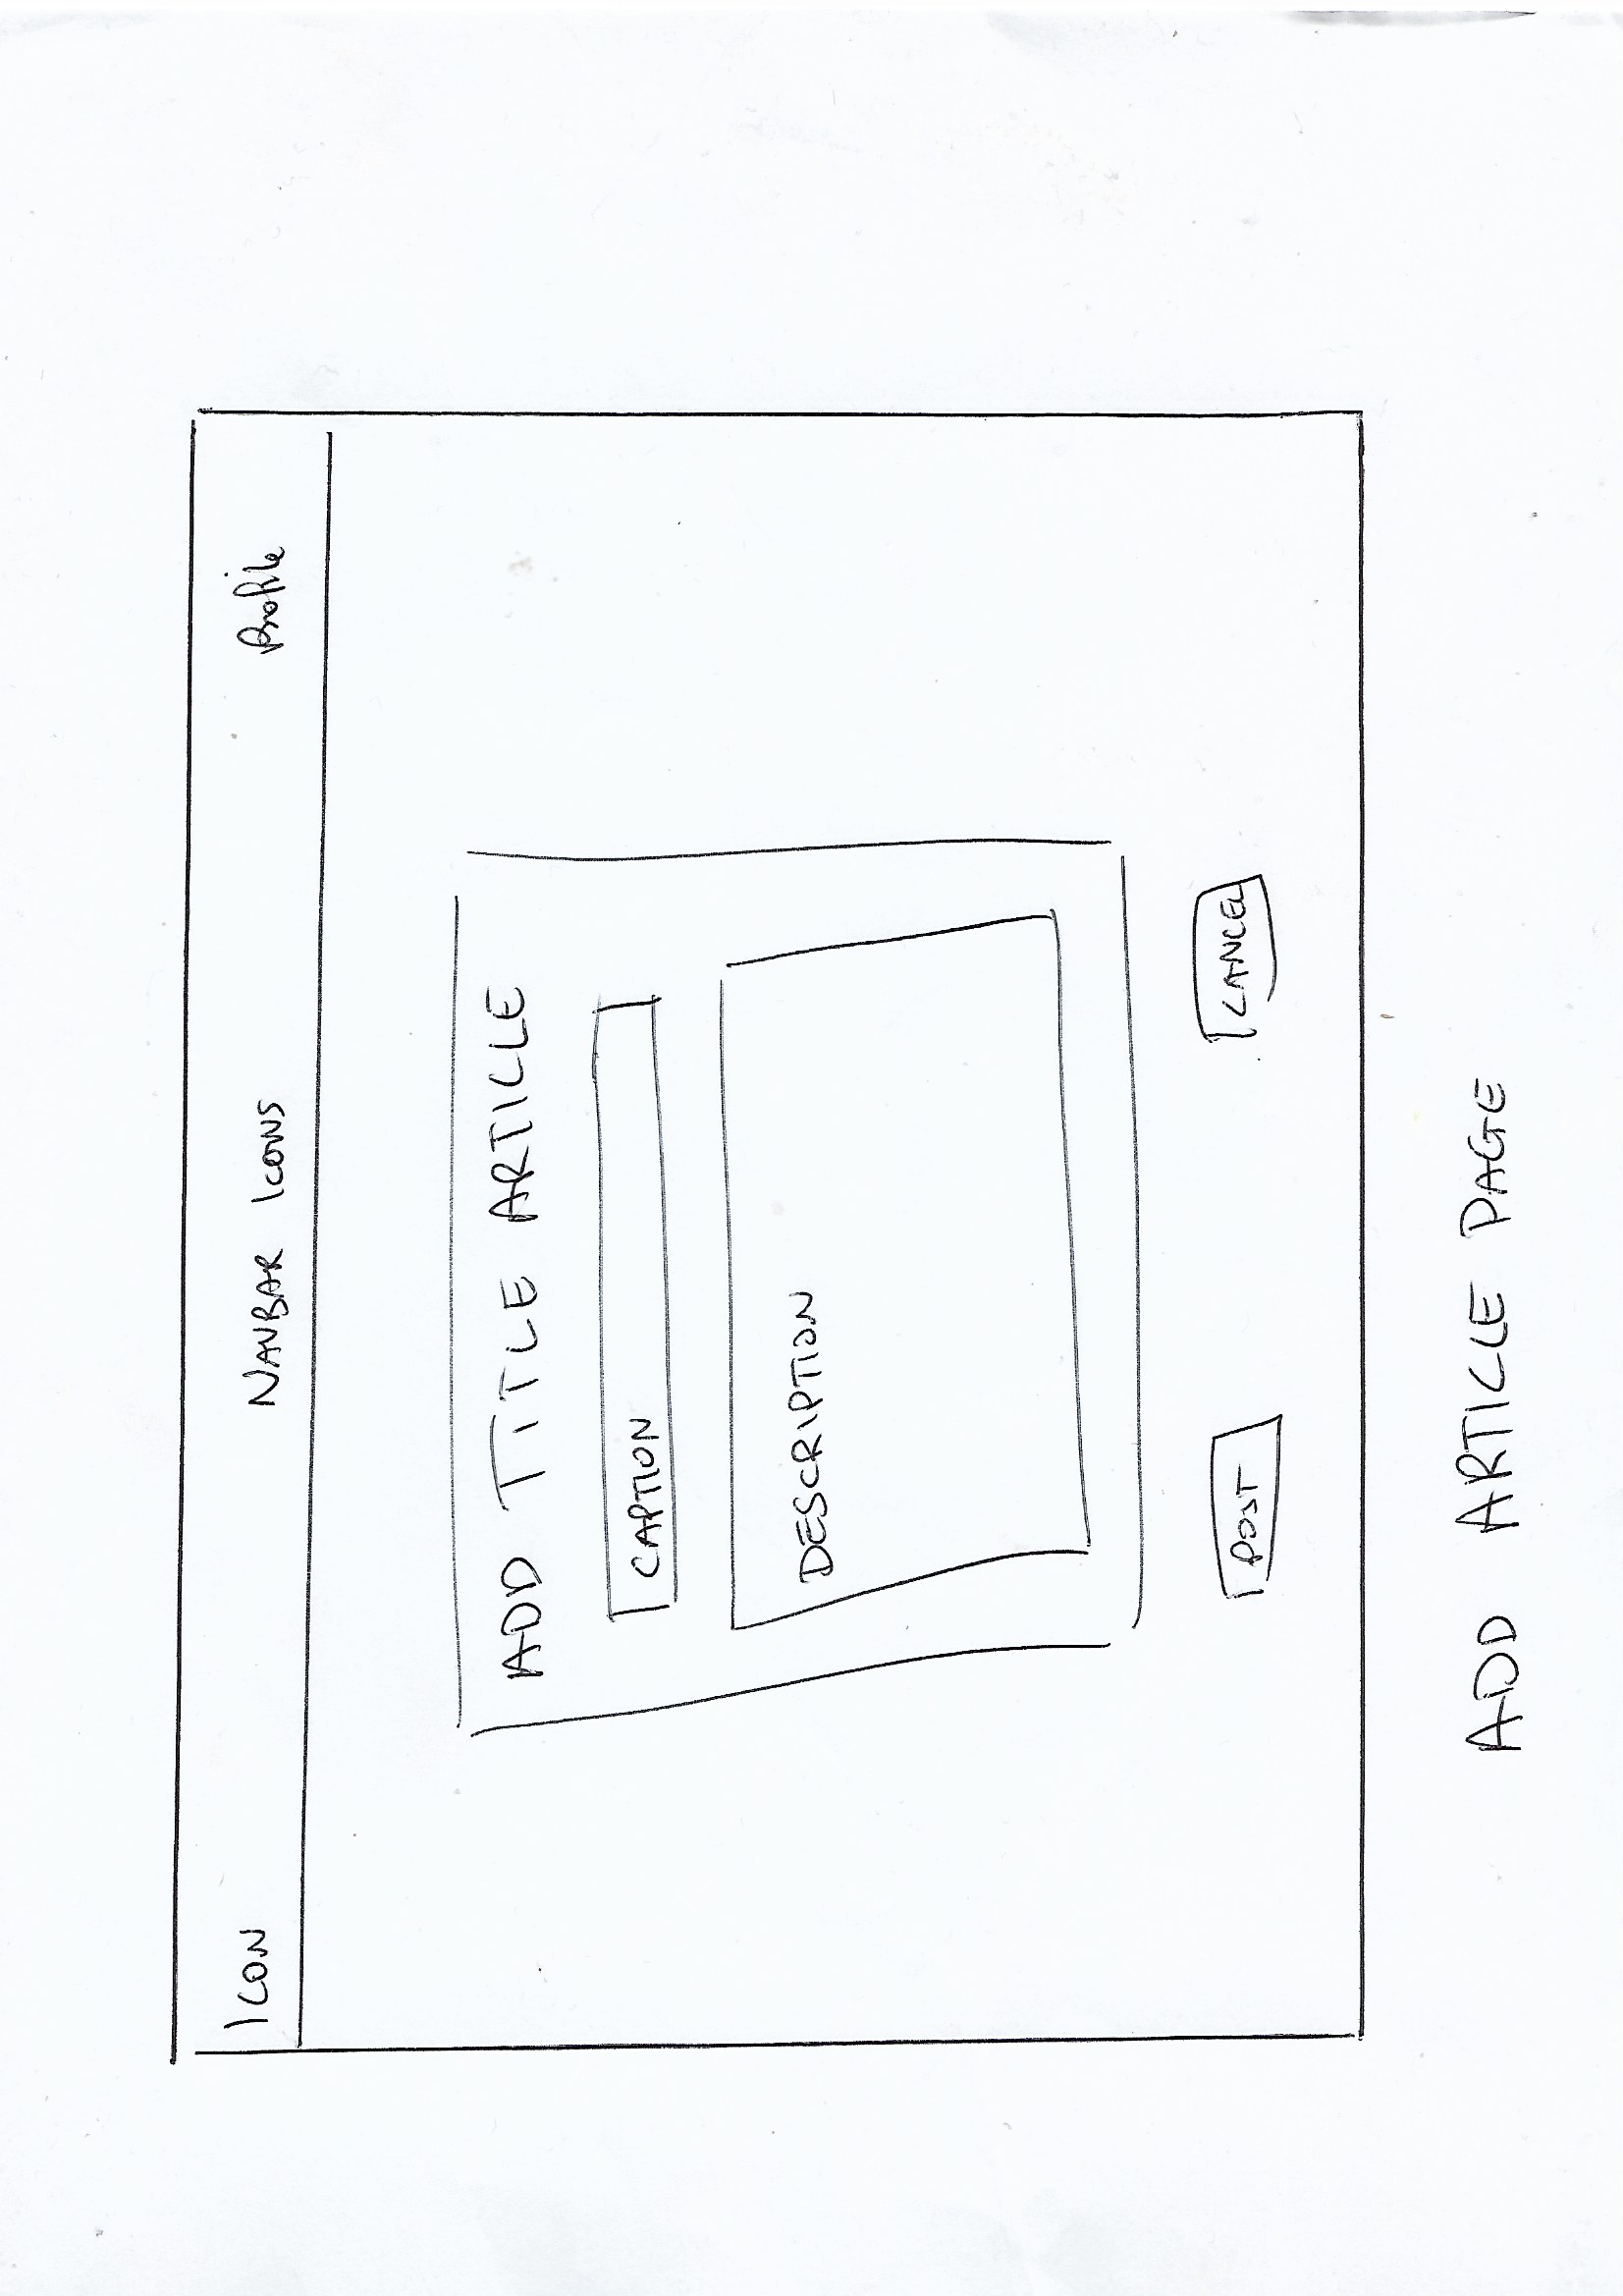 ICON NAVBAR ICONS Profile
ADD TITLE ARTICLE
CAPTION
DESCRIPTION
POST CANCEL
ADD ARTICLE PAGE